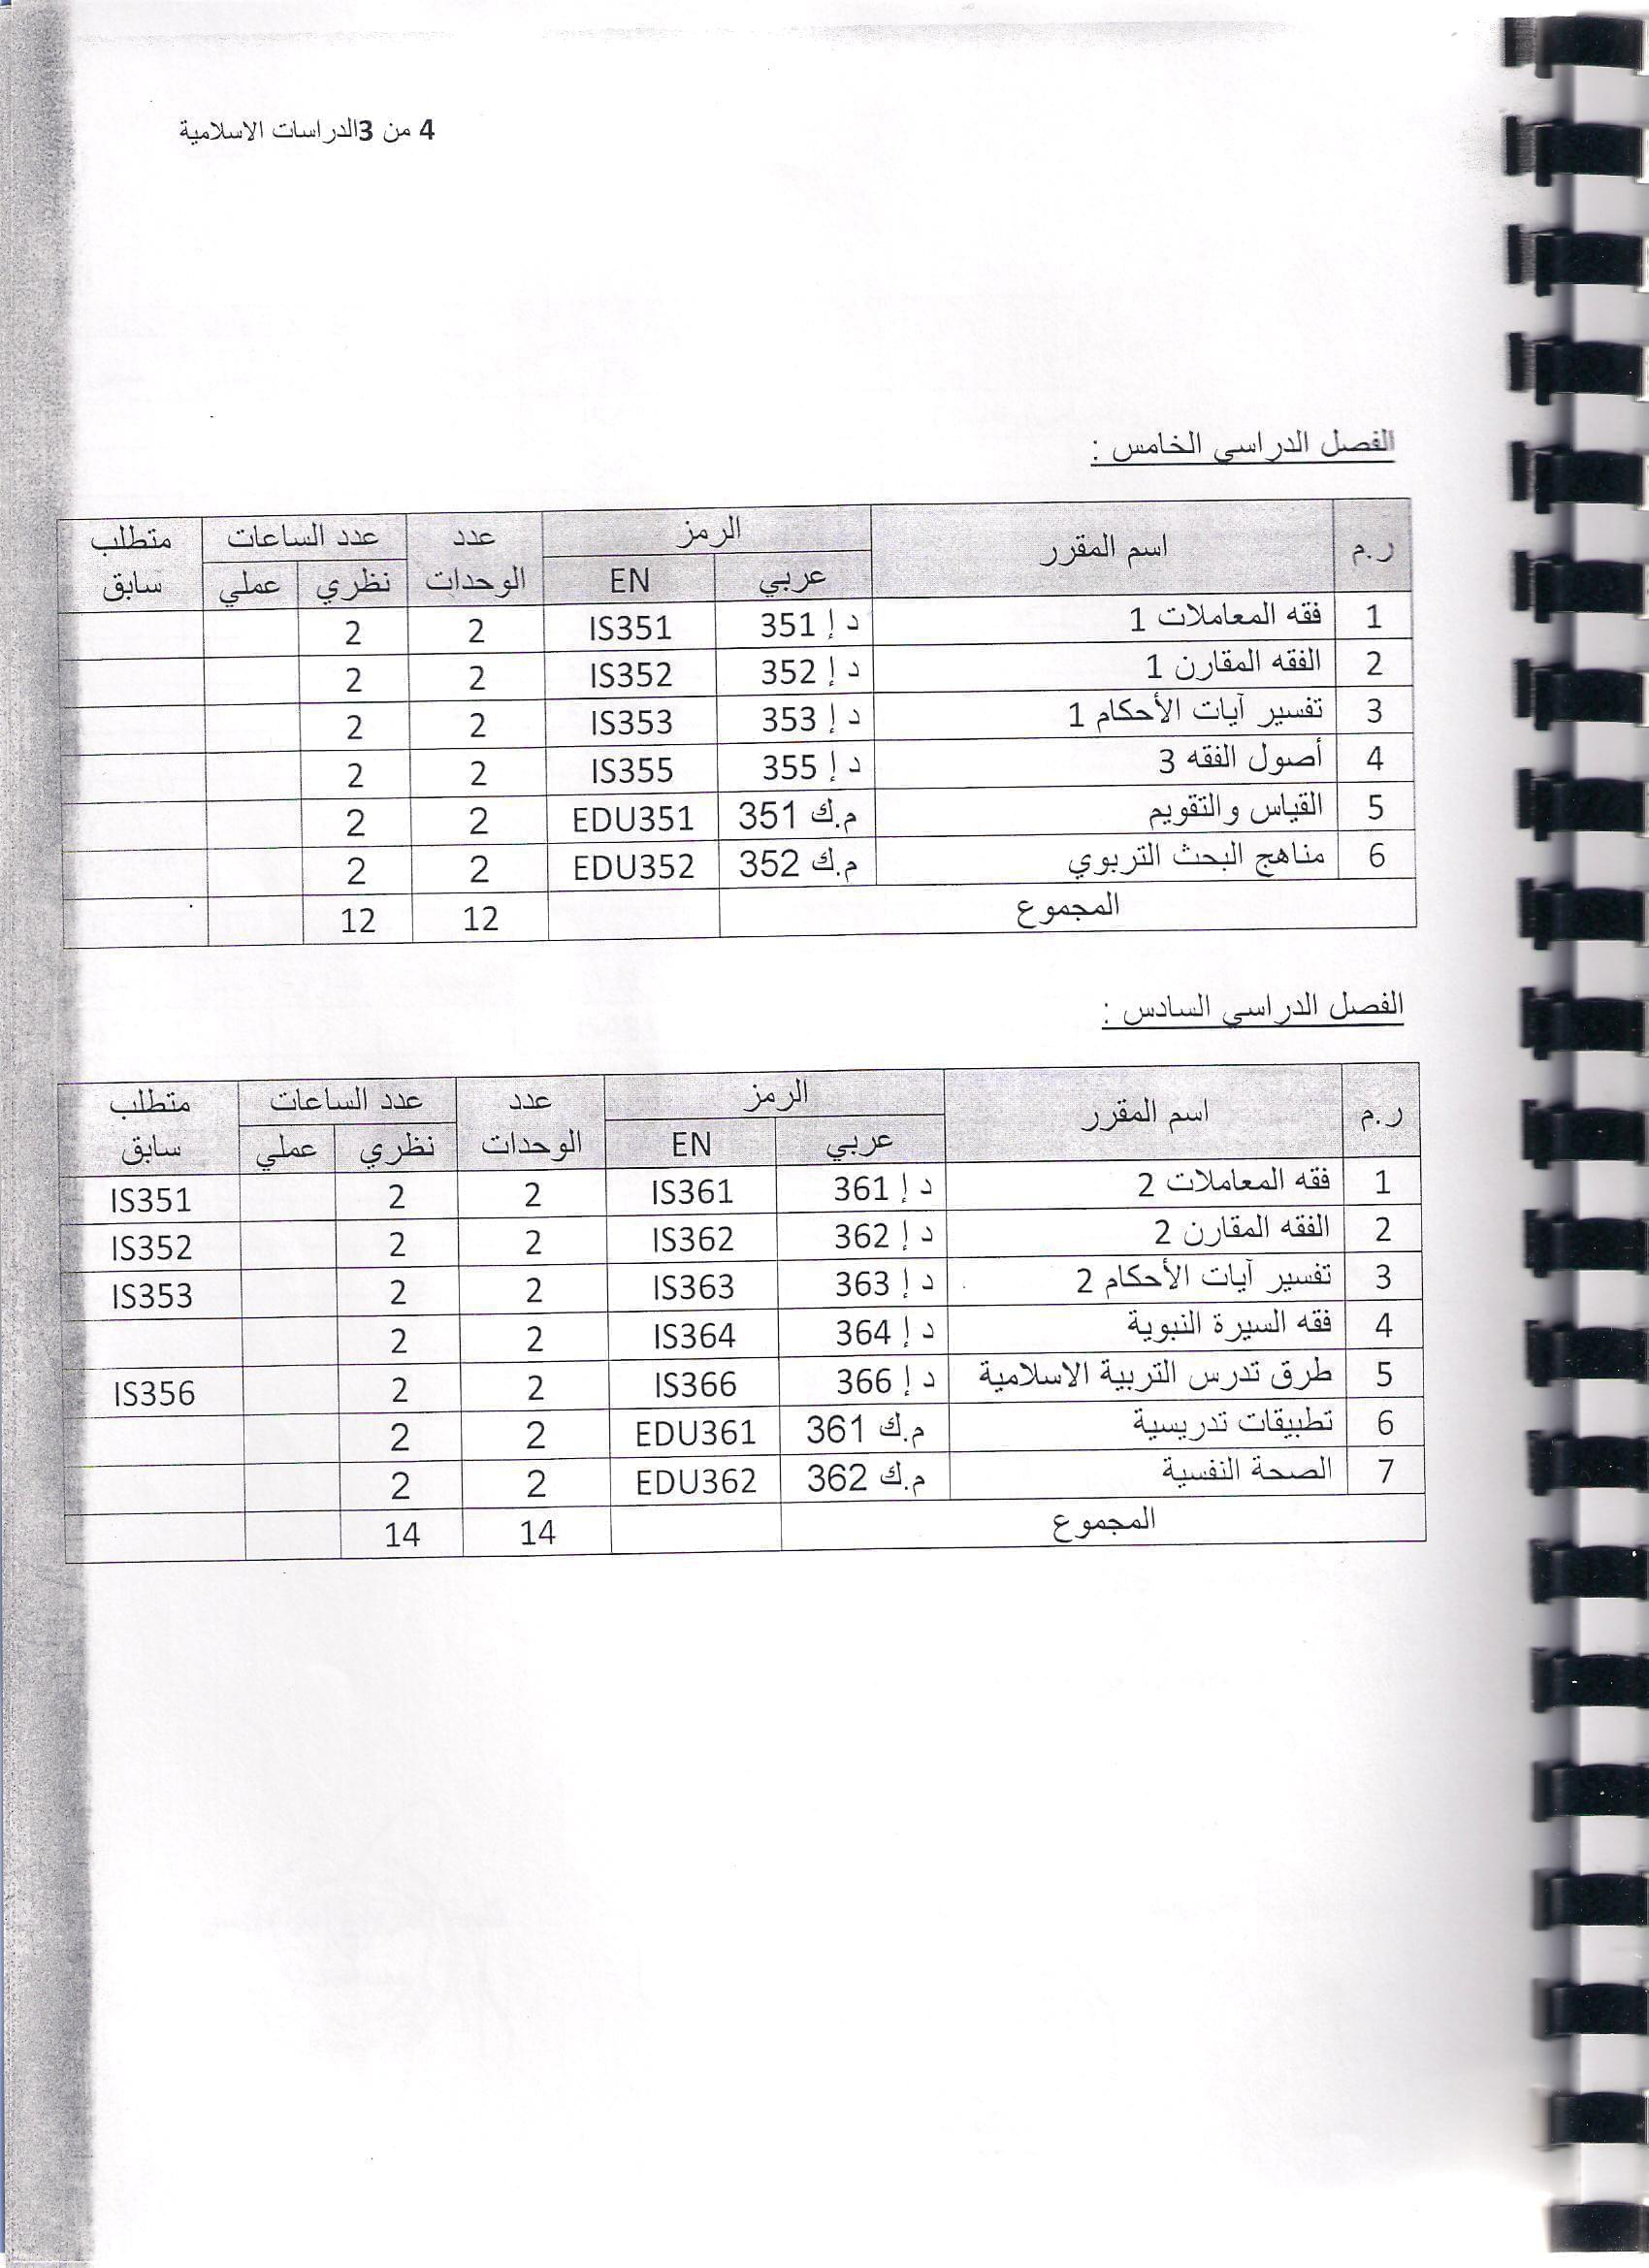 4 من 3الدراسات الاسلامية
الفصل الدراسي الخامس :
ر.م اسم المقرر الرمز عدد الوحدات عدد الساعات متطلب سابق
عربي EN نظري عملي
1 فقه المعاملات 1 د إ 351 IS351 2 2
2 الفقه المقارن 1 د إ 352 IS352 2 2
3 تفسير آيات الأحكام 1 د إ 353 IS353 2 2
4 أصول الفقه 3 د إ 355 IS355 2 2
5 القياس والتقويم م.ك 351 EDU351 2 2
6 مناهج البحث التربوي م.ك 352 EDU352 2 2
المجموع 12 12
الفصل الدراسي السادس :
ر.م اسم المقرر الرمز عدد الوحدات عدد الساعات متطلب سابق
عربي EN نظري عملي
1 فقه المعاملات 2 د إ 361 IS361 2 2 IS351
2 الفقه المقارن 2 د إ 362 IS362 2 2 IS352
3 تفسير آيات الأحكام 2 د إ 363 IS363 2 2 IS353
4 فقه السيرة النبوية د إ 364 IS364 2 2
5 طرق تدرس التربية الاسلامية د إ 366 IS366 2 2 IS356
6 تطبيقات تدريسية م.ك 361 EDU361 2 2
7 الصحة النفسية م.ك 362 EDU362 2 2
المجموع 14 14